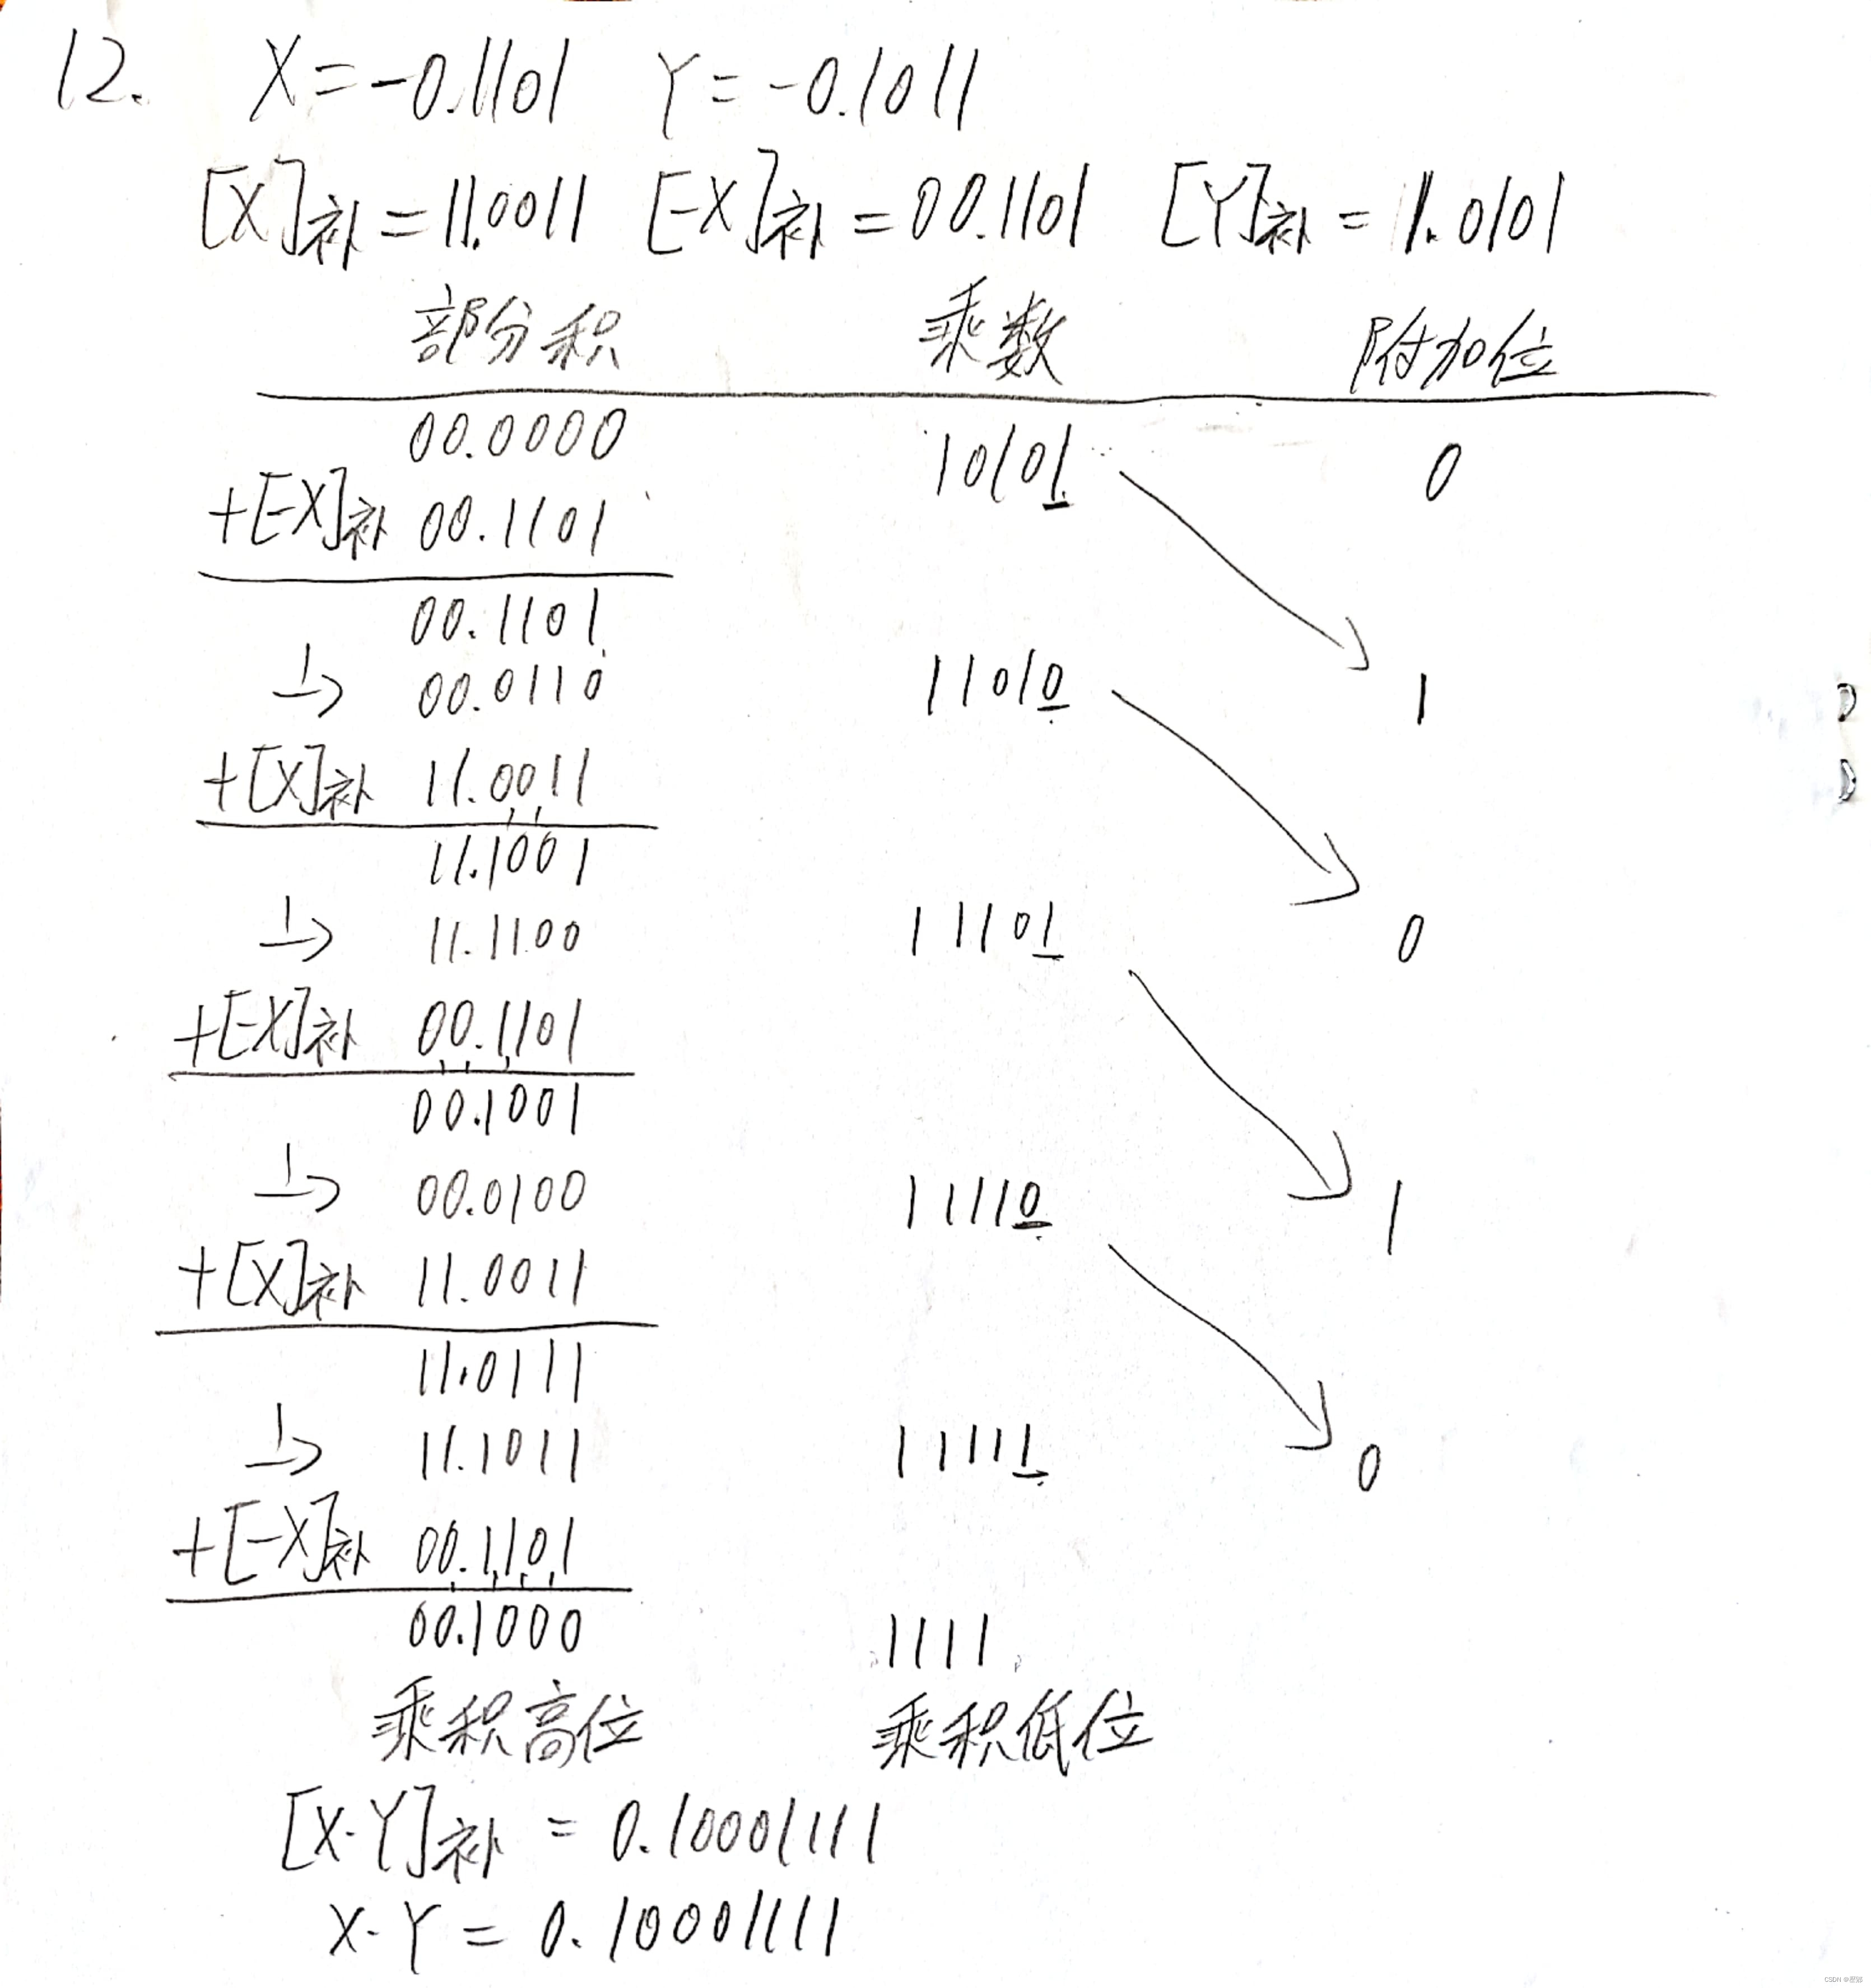 12. X=-0.1101 Y=-0.1011
[X]补=11.0011 [-X]补=00.1101 [Y]补=1.0101
部分积 乘数 附加位
00.0000 10101 0
+[-X]补 00.1101
00.1101
1→ 00.0110 11010 1
+[X]补 11.0011
11.1001
1→ 11.1100 11101 0
+[-X]补 00.1101
00.1001
1→ 00.0100 11110 1
+[X]补 11.0011
11.0111
1→ 11.1011 11111 0
+[-X]补 00.1101
00.1000 1111
乘积高位 乘积低位
[X·Y]补=0.10001111
X·Y=0.10001111